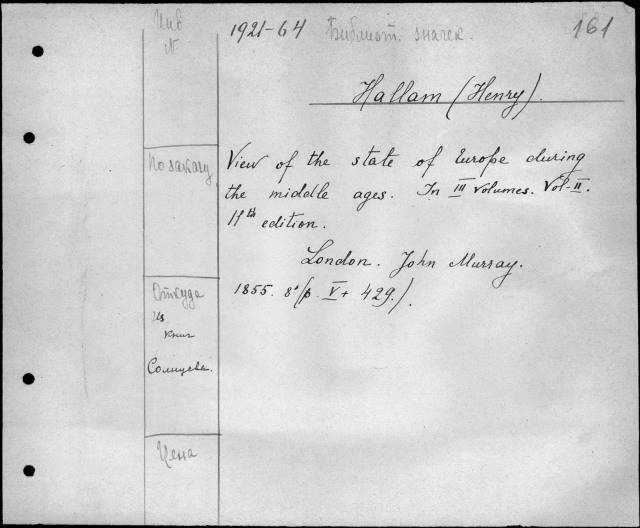 Инв
№
1921-64 Библиот. значек.
161
Hallam (Henry).
По заказу
View of the state of Europe during
the middle ages. In III volumes. Vol-II.
11th edition.
London. John Murray.
1855. 8° (p. V + 429.).
Откуда
Из
книг
Солнцева.
Цена